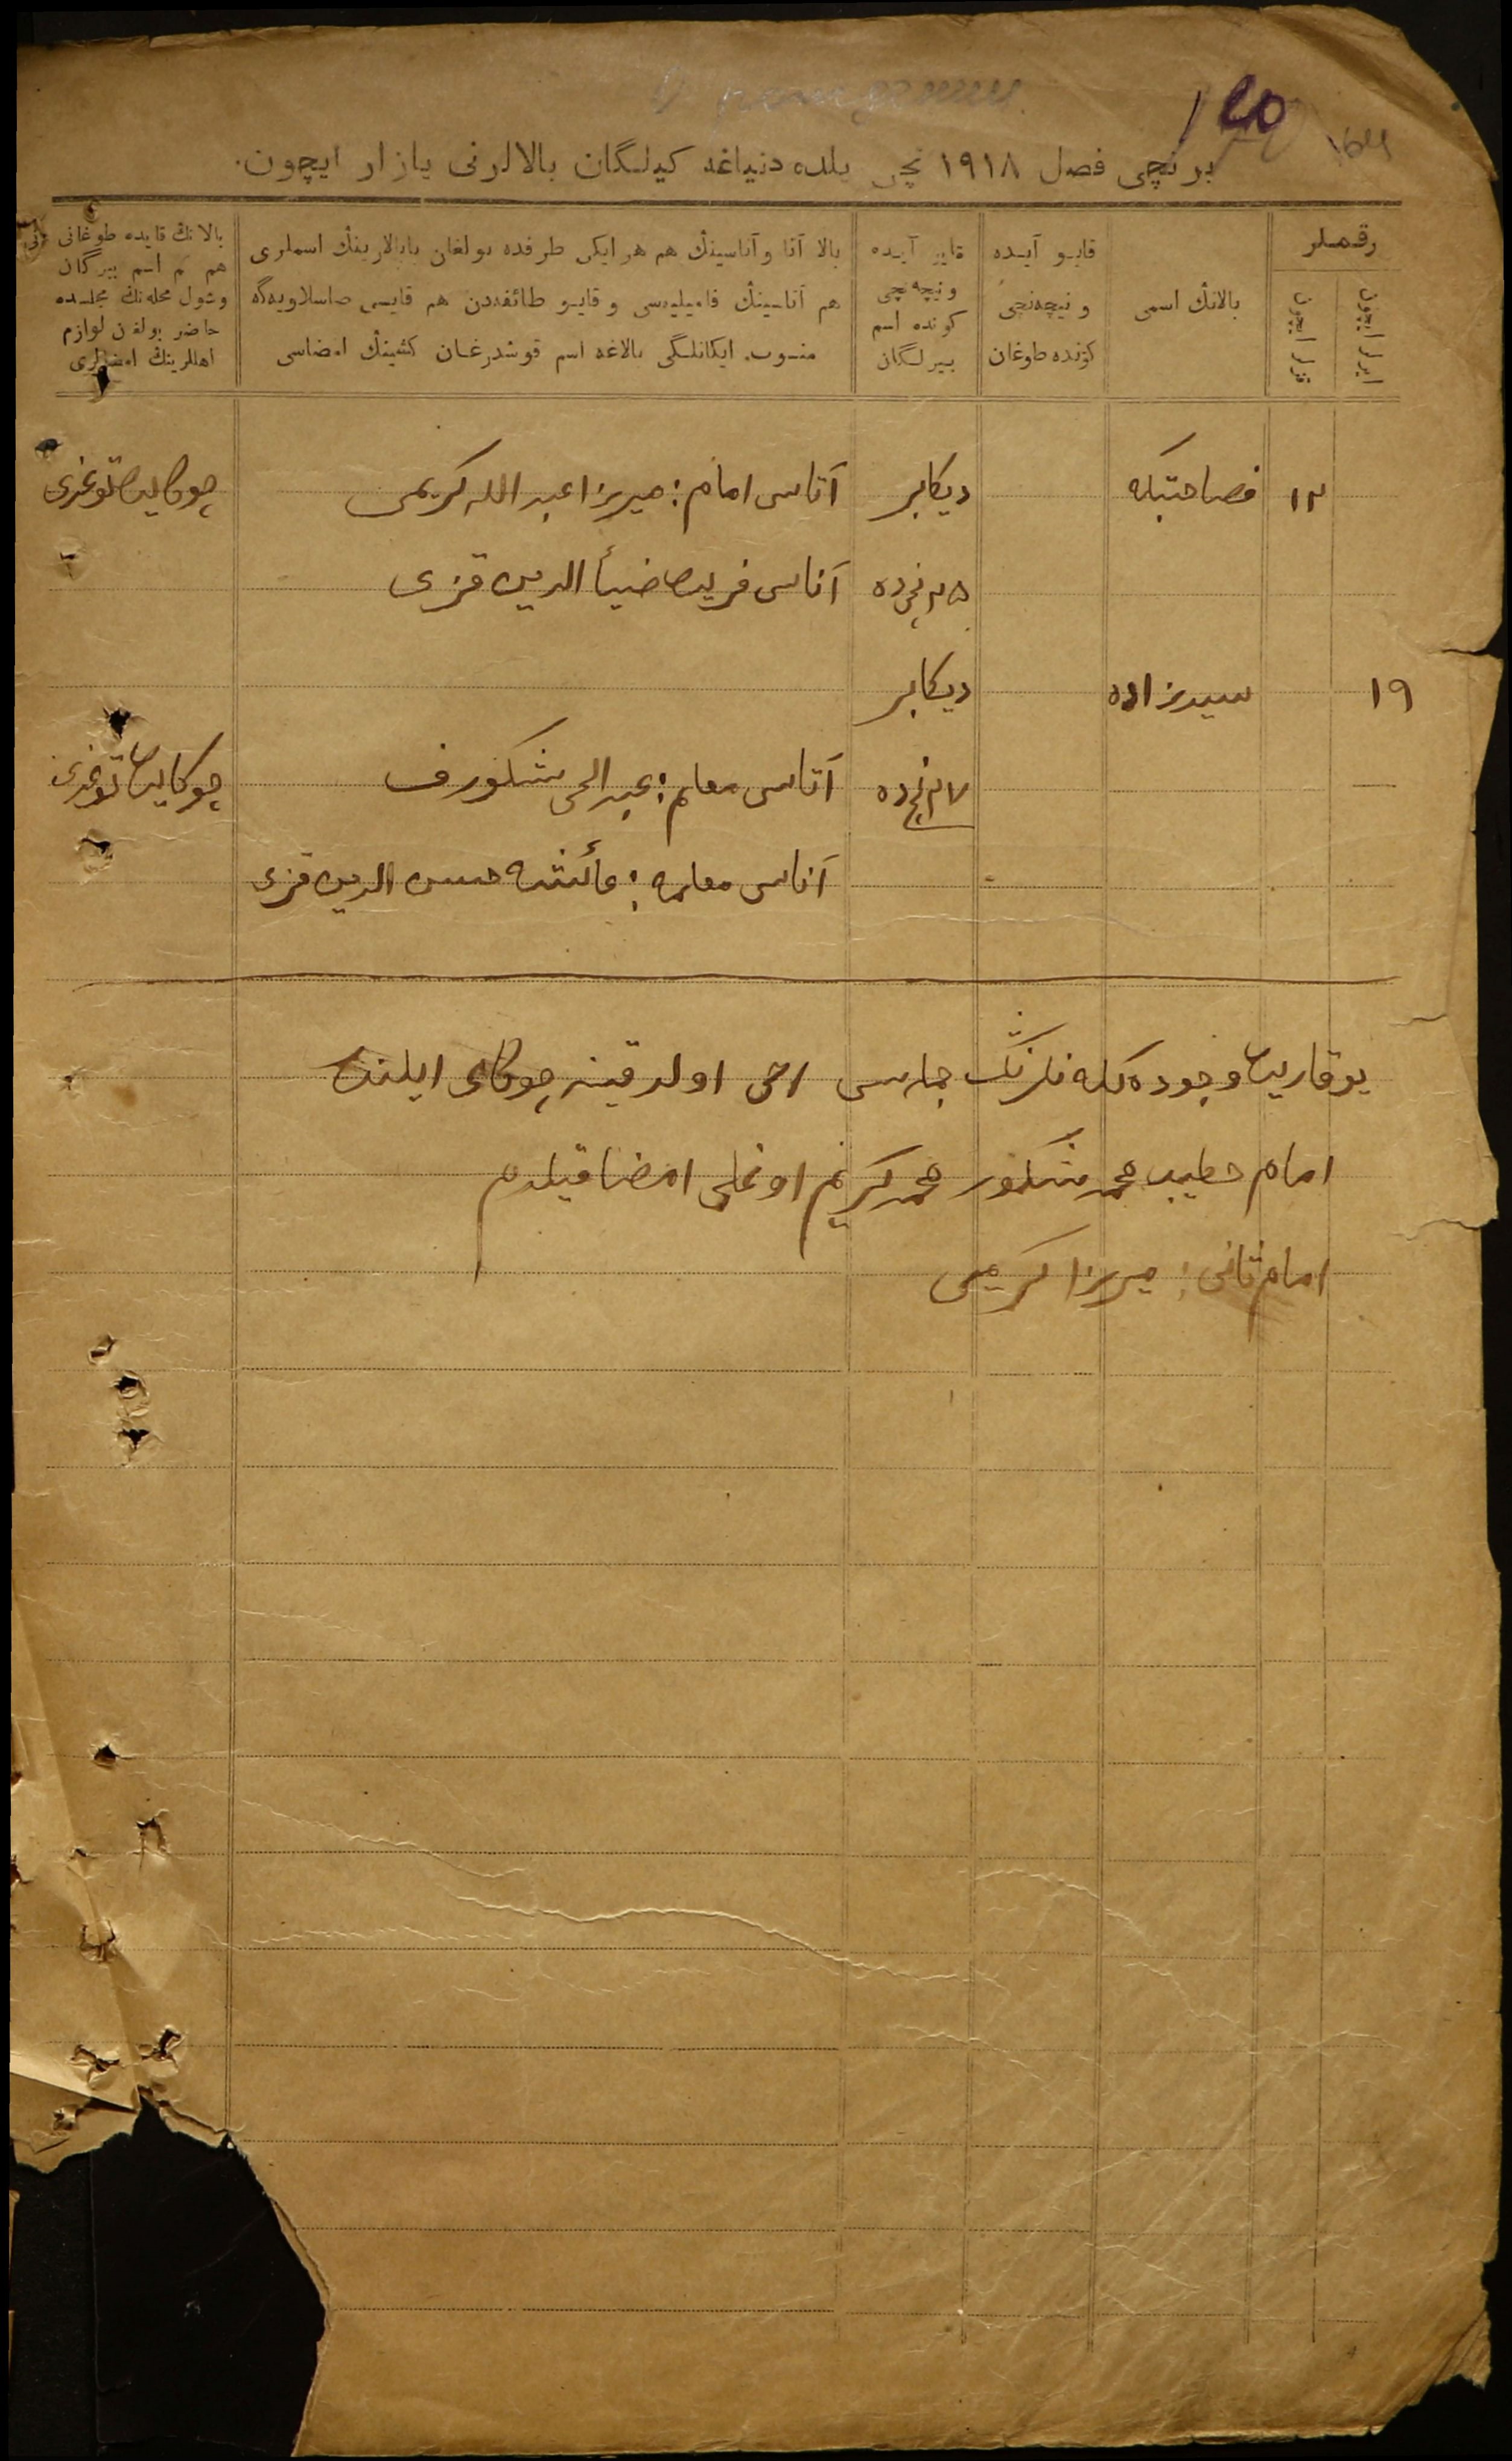 برنچی فصل ١٩١٨ نچی یلده دنیاغه کیلگان بالالرنی یازار ایچون.
رقملر
ایرلر ایچون
قزلر ایچون
بالانڭ اسمی
قایو آیده
و نیچه‌نچی
کونده طوغان
قایو آیده
و نیچه‌نچی
کونده اسم
بیرلگان
بالا آتا و آناسینڭ هم هر ایکی طرفده بولغان بابالارینڭ اسملری
هم آتاسینڭ فامیلیه‌سی و قایو طائفه‌دن هم قایسی صاسلاویه‌گه
منسوب ایکانلگی بالاغه اسم قوشدرغان کشینڭ امضاسی
بالانڭ قایده طوغانی
هم کم اسم بیرگان
وشول محله‌نڭ مجلسده
حاضر بولغن لوازم
اهللرینڭ امضالری
١٢ فصاحتبکه دیکابر آتاسی امام: میرزا عبد الله کریمی چوکالیده توغدی
٢٥ نچیده آناسی فریده ضیأ الدین قزی
١٩ سیدزاده دیکابر
٢٧ نچیده آتاسی معلم: عبد الحی شکورف چوکالیده توغدی
آناسی معلمه: عائشه حسن الدین قزی
یوقاریده وجوده کله‌نلرنڭ جمله‌سی
امام خطیب محمد شکور محمد کریم اوغلی امضا قیلدم
امام ثانی: میرزا کریمی